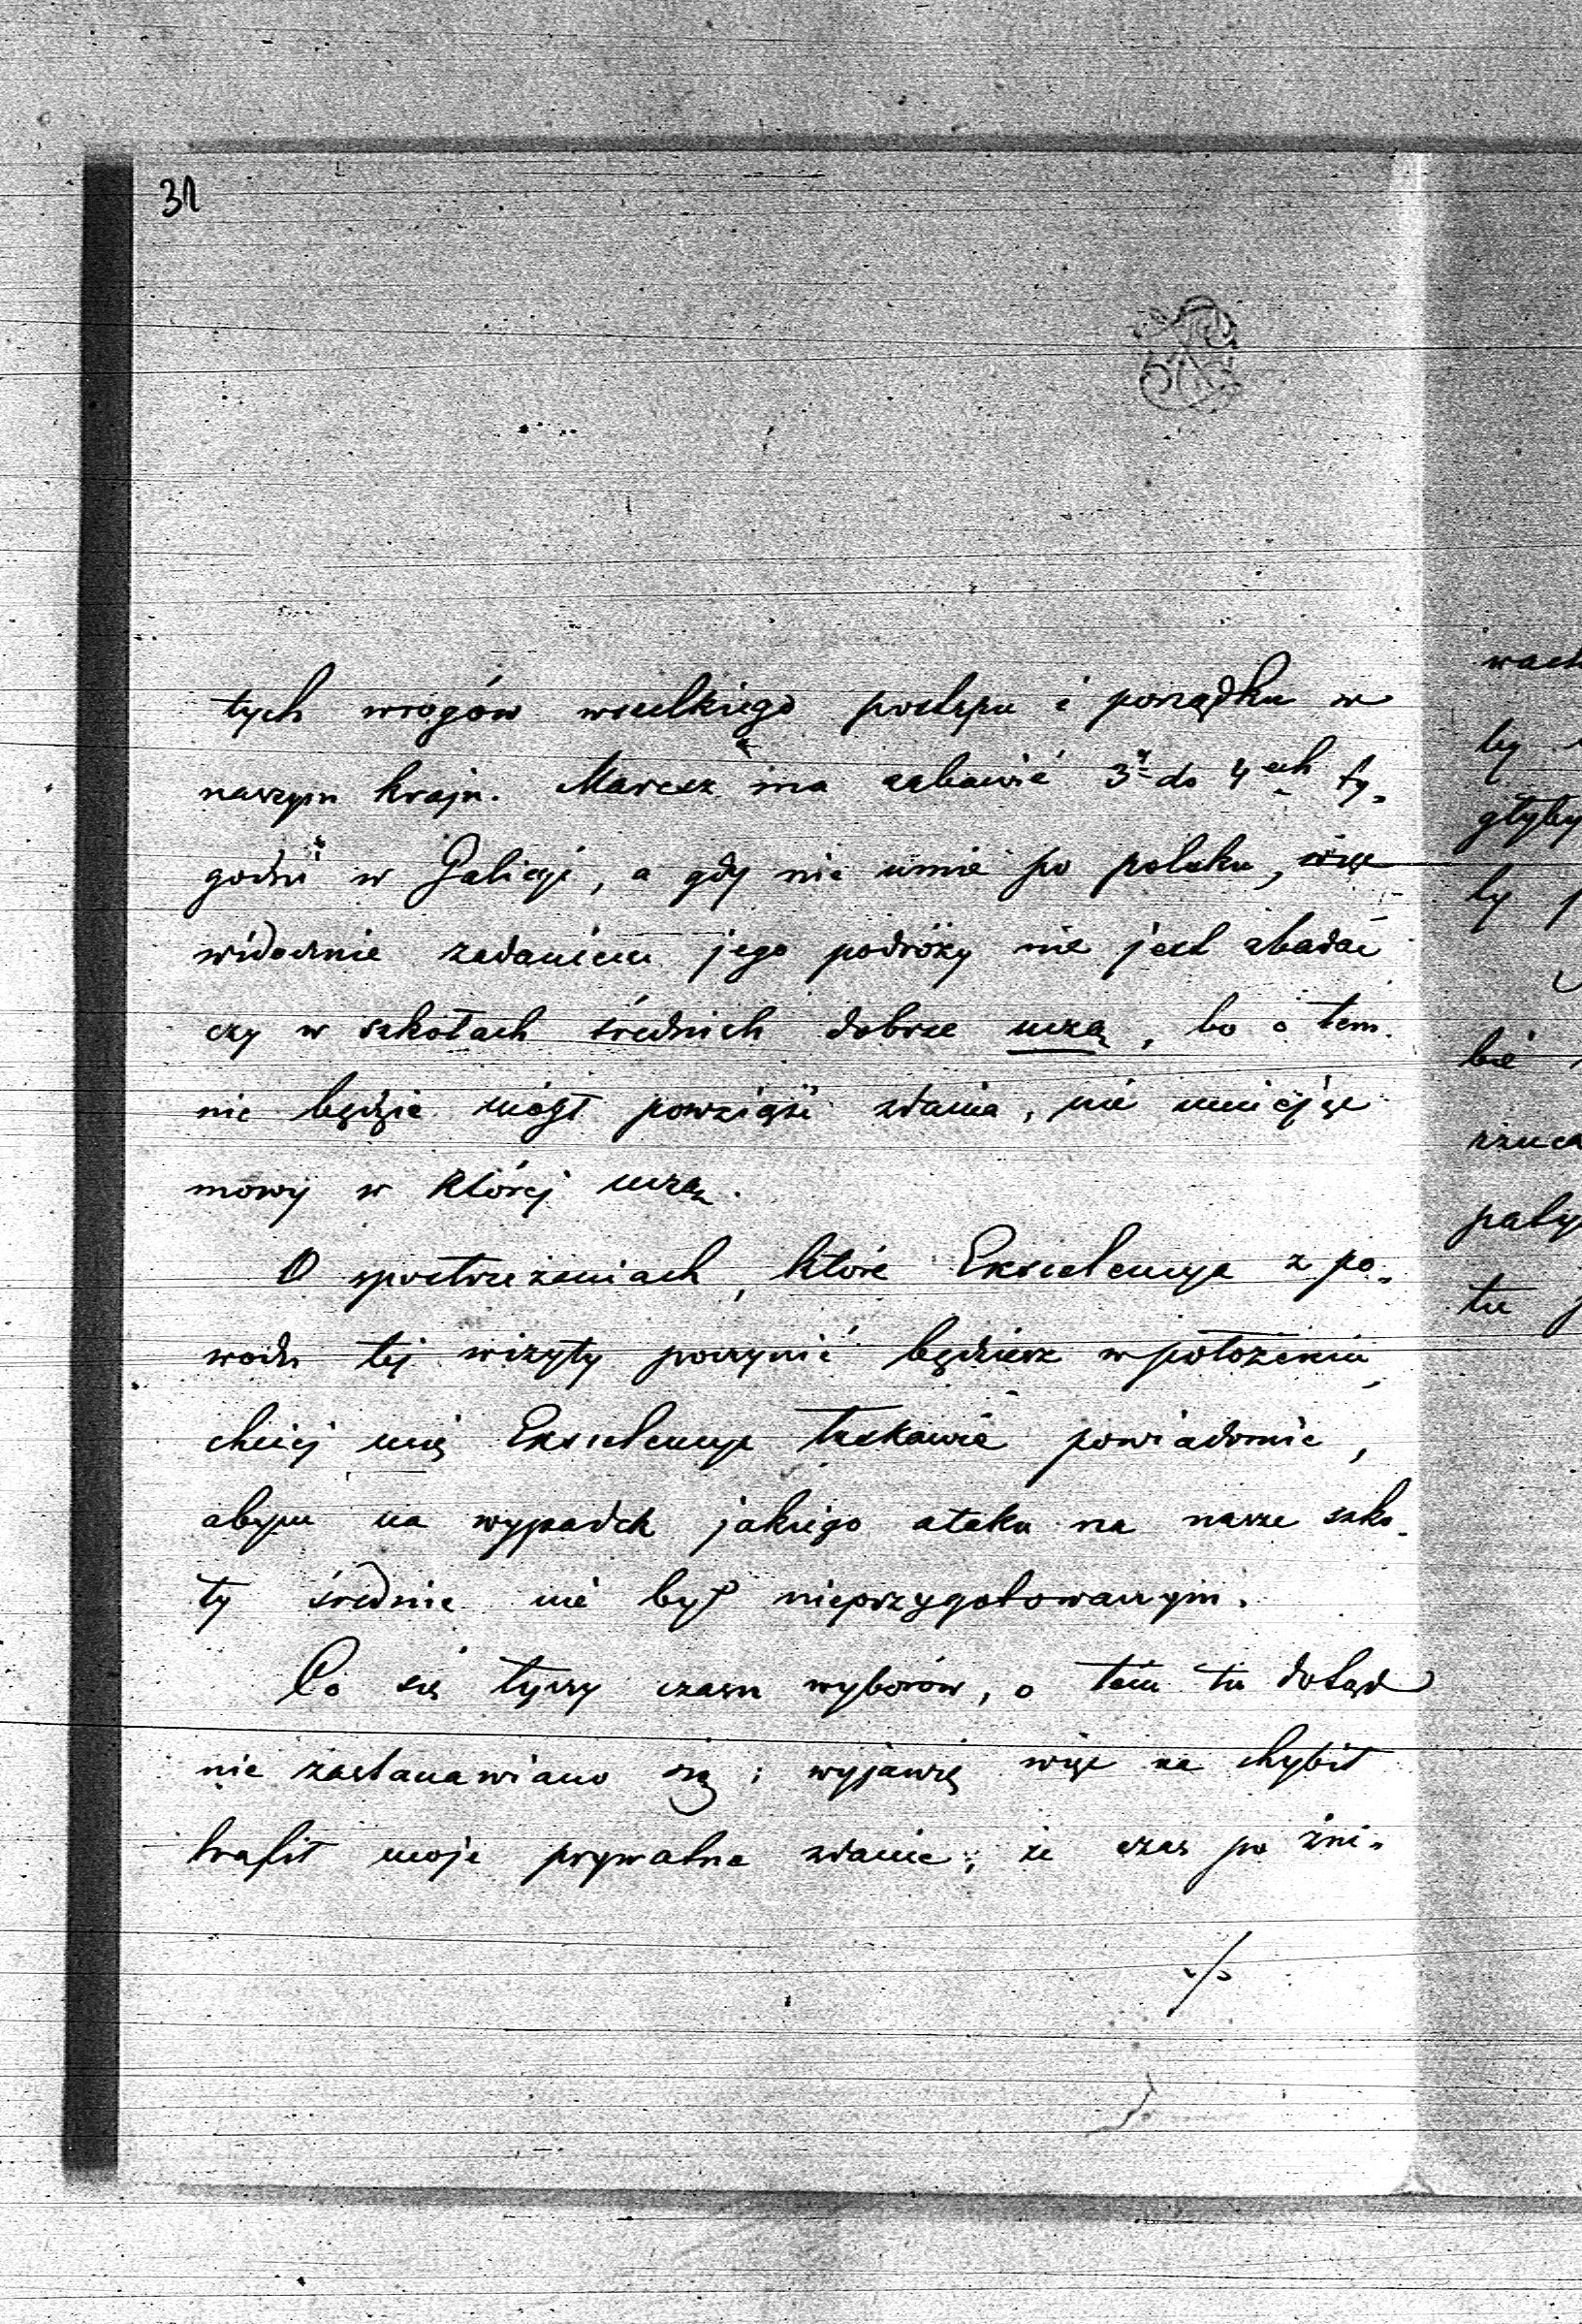 31
tych wrogów wszelkiego postępu i porządku w
naszym kraju. Maresz ma zabawić 3y do 4ech ty-
godni w Galicyi, a gdy nie umie po polsku, więc
widocznie zadaniem jego podróży nie jest zbadać
czy w szkołach średnich dobrze uczą, bo o tem
nie będzie mógł powziąść zdania, nie umiejąc
mowy w której uczą.
O spostrzeżeniach, które Ekscelencya z po-
wodu tej wizyty poczynić będziesz w położeniu,
chciej mię Ekscelencyo łaskawie powiadomić,
abym na wypadek jakiego ataku na nasze szko-
ły średnie nie był nieprzygotowanym.
Co się tyczy czasu wyborów, o tem tu dotąd
nie zastanawiano się; wyjawię więc na chybił
trafił moje prywatne zdanie, że czas po żni-
./.
wach
by
głyby
ly
bie
rzuca
paty
tu